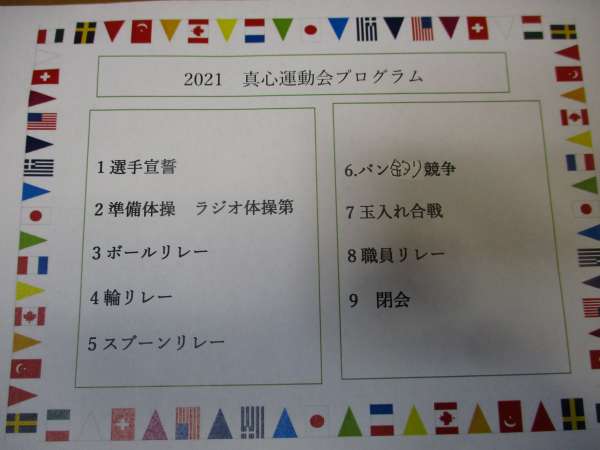 2021　真心運動会プログラム
1 選手宣誓
2 準備体操　ラジオ体操第
3 ボールリレー
4 輪リレー
5 スプーンリレー
6.パン釣り競争
7 玉入れ合戦
8 職員リレー
9　閉会